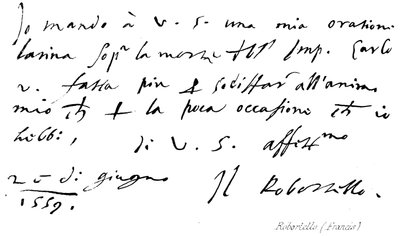 Io mando à V. S. una mia oration
latina sopra la morte dell' Imp. Carlo
v. fatta piu per sodisfar all'animo
mio che per la poca occasione che io
hebbi,
di V. S. affett.mo
25 di giugno Il Robortello.
1559.
Robortello (Francis)